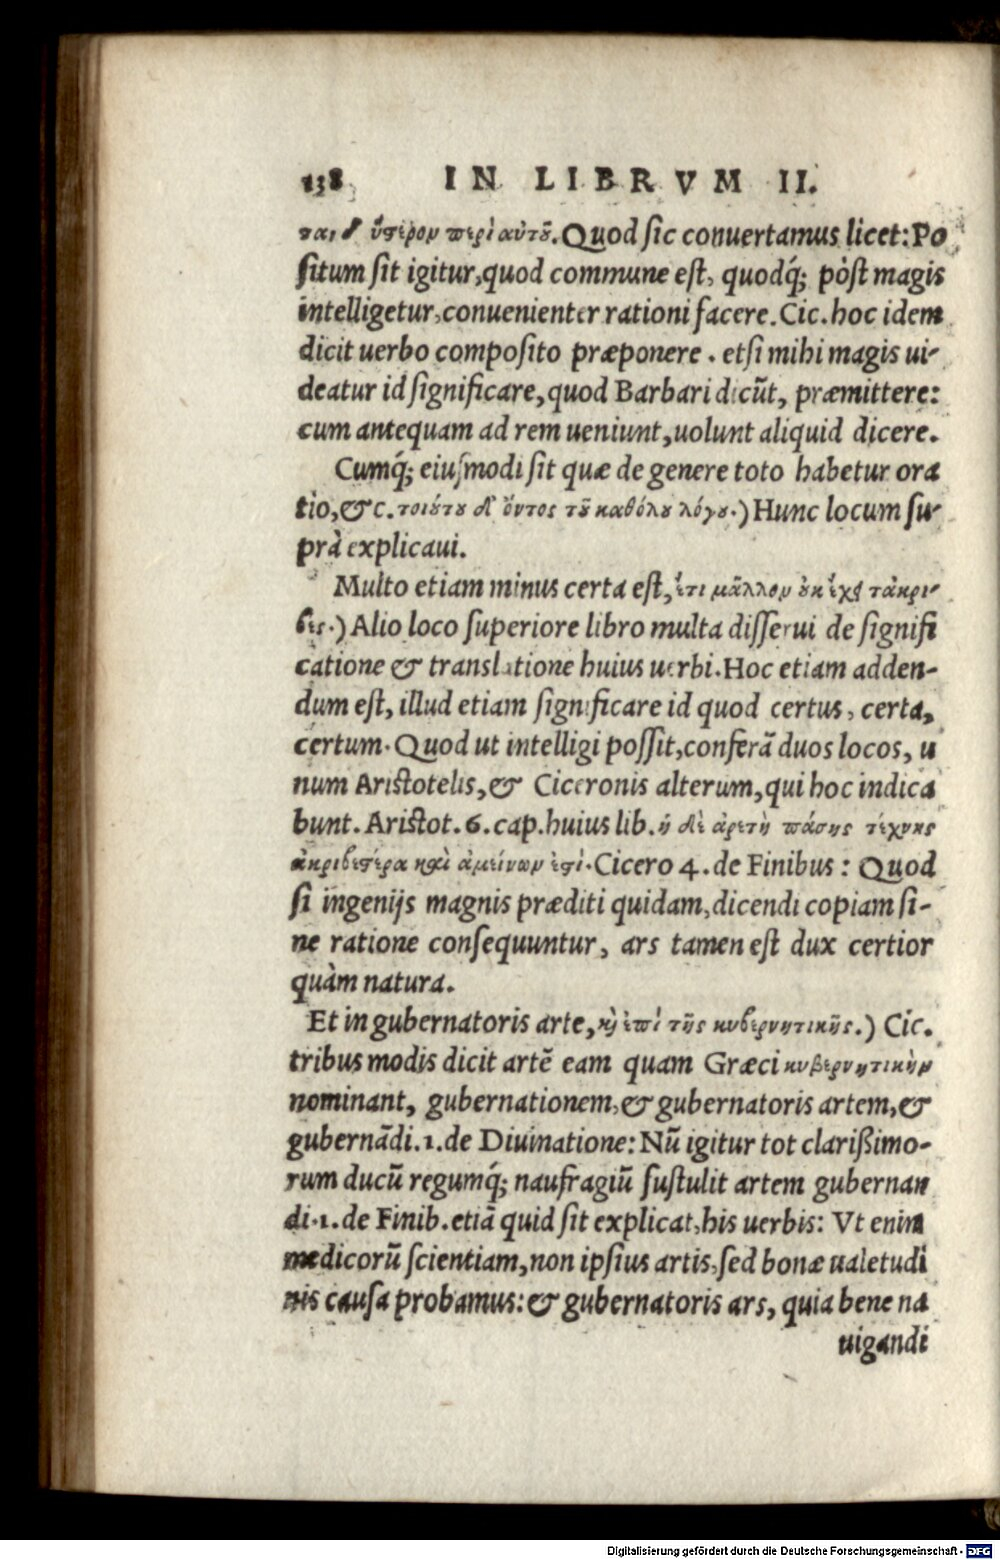 138 IN LIBRVM II.
ται, δ' ὕστερον περὶ αὐτοῦ. Quod sic conuertamus licet: Po
situm sit igitur, quod commune est, quodq́; pòst magis
intelligetur, conuenienter rationi facere. Cic. hoc idem
dicit uerbo composito præponere. etsi mihi magis ui-
deatur id significare, quod Barbari dicūt, præmittere:
cum antequam ad rem ueniunt, uolunt aliquid dicere.
Cumq́; eiusmodi sit quæ de genere toto habetur ora
tio, &c. τοιούτου δ' ὄντος τοῦ καθόλου λόγου.) Hunc locum su-
prà explicaui.
Multo etiam minus certa est, ἔτι μᾶλλον οὐκ ἔχει τἀκρι-
βές.) Alio loco superiore libro multa disserui de signifi
catione & translatione huius uerbi. Hoc etiam adden-
dum est, illud etiam significare id quod certus, certa,
certum. Quod ut intelligi possit, conferā duos locos, u
num Aristotelis, & Ciceronis alterum, qui hoc indica
bunt. Aristot. 6. cap. huius lib. ἡ δὲ ἀρετὴ πάσης τέχνης
ἀκριβεστέρα καὶ ἀμείνων ἐστί. Cicero 4. de Finibus: Quod
si ingenijs magnis præditi quidam, dicendi copiam si-
ne ratione consequuntur, ars tamen est dux certior
quàm natura.
Et in gubernatoris arte, καὶ ἐπὶ τῆς κυβερνητικῆς.) Cic.
tribus modis dicit artē eam quam Græci κυβερνητικὴν
nominant, gubernationem, & gubernatoris artem, &
gubernādi. 1. de Diuinatione: Nū igitur tot clarißimo-
rum ducū regumq́; naufragiū sustulit artem gubernan
di. 1. de Finib. etiā quid sit explicat, his uerbis: Vt enim
medicorū scientiam, non ipsius artis, sed bonæ ualetudi
nis causa probamus: & gubernatoris ars, quia bene na
uigandi
Digitalisierung gefördert durch die Deutsche Forschungsgemeinschaft - DFG